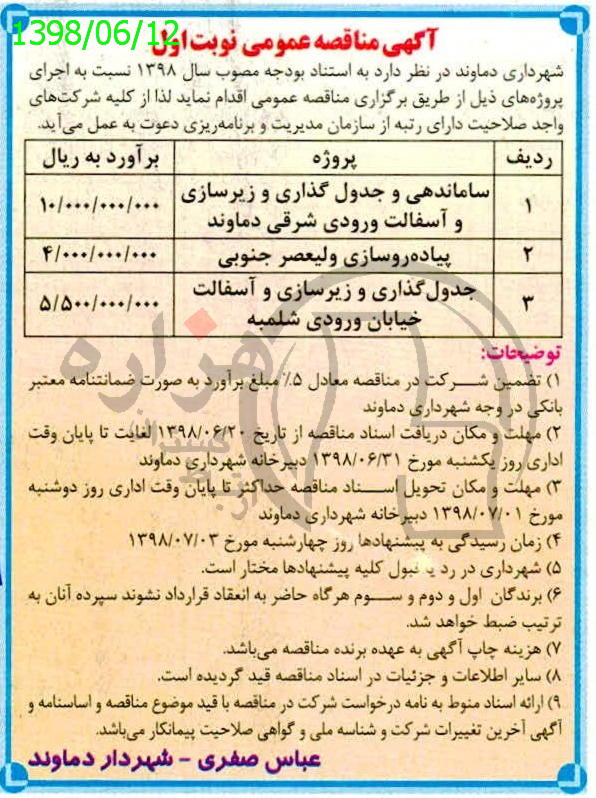 1398/06/12
آگهی مناقصه عمومی نوبت اول
شهرداری دماوند در نظر دارد به استناد بودجه مصوب سال ۱۳۹۸ نسبت به اجرای
پروژه‌های ذیل از طریق برگزاری مناقصه عمومی اقدام نماید لذا از کلیه شرکت‌های
واجد صلاحیت دارای رتبه از سازمان مدیریت و برنامه‌ریزی دعوت به عمل می‌آید.
ردیف پروژه برآورد به ریال
۱ ساماندهی و جدول گذاری و زیرسازی ۱۰/۰۰۰/۰۰۰/۰۰۰
و آسفالت ورودی شرقی دماوند
۲ پیاده‌روسازی ولیعصر جنوبی ۴/۰۰۰/۰۰۰/۰۰۰
۳ جدول‌گذاری و زیرسازی و آسفالت ۵/۵۰۰/۰۰۰/۰۰۰
خیابان ورودی شلمبه
توضیحات:
۱) تضمین شرکت در مناقصه معادل ۵٪ مبلغ برآورد به صورت ضمانتنامه معتبر
بانکی در وجه شهرداری دماوند
۲) مهلت و مکان دریافت اسناد مناقصه از تاریخ ۱۳۹۸/۰۶/۲۰ لغایت تا پایان وقت
اداری روز یکشنبه مورخ ۱۳۹۸/۰۶/۳۱ دبیرخانه شهرداری دماوند
۳) مهلت و مکان تحویل اسناد مناقصه حداکثر تا پایان وقت اداری روز دوشنبه
مورخ ۱۳۹۸/۰۷/۰۱ دبیرخانه شهرداری دماوند
۴) زمان رسیدگی به پیشنهادها روز چهارشنبه مورخ ۱۳۹۸/۰۷/۰۳
۵) شهرداری در رد یا قبول کلیه پیشنهادها مختار است.
۶) برندگان اول و دوم و سوم هرگاه حاضر به انعقاد قرارداد نشوند سپرده آنان به
ترتیب ضبط خواهد شد.
۷) هزینه چاپ آگهی به عهده برنده مناقصه می‌باشد.
۸) سایر اطلاعات و جزئیات در اسناد مناقصه قید گردیده است.
۹) ارائه اسناد منوط به نامه درخواست شرکت در مناقصه با قید موضوع مناقصه و اساسنامه و
آگهی آخرین تغییرات شرکت و شناسه ملی و گواهی صلاحیت پیمانکار می‌باشد.
عباس صفری - شهردار دماوند
هزاره